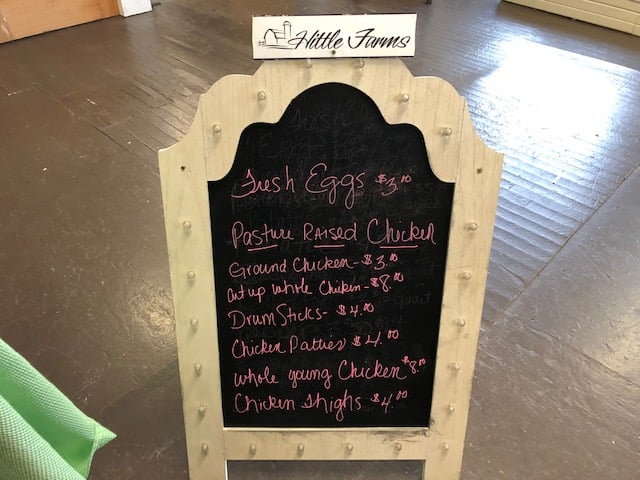 Hittle Farms
Fresh Eggs $3.00
Pasture Raised Chicken
Ground Chicken - $3.00
cut up whole Chicken - $8.00
DrumSticks - $4.00
Chicken Patties $4.00
whole young Chicken $8.00
Chicken Thighs $4.00